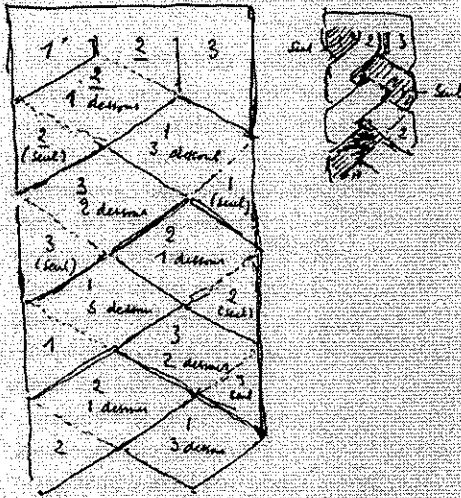 1 2 3
2
1 dessous
2
(seul)
1
3 dessous
3
2 dessous
1
(seul)
3
(seul)
2
1 dessous
1
3 dessous
2
(seul)
1
3
2 dessous
2
1 dessous
3
seul
2
1
3 dessous
seul
2 3
seul
2